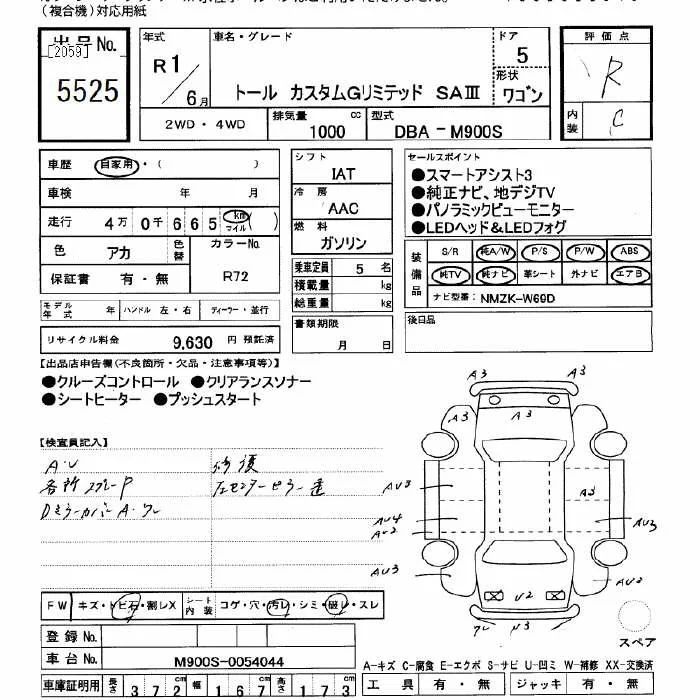 （複合機）対応用紙
出品No.
[2059]
5525
年式
R1/6月
車名・グレード
トール カスタムGリミテッド SAⅢ
ドア
5
形状
ワゴン
評価点
R
内装
C
2WD・4WD
排気量
1000
cc
型式
DBA-M900S
車歴
自家用・（ ）
車検
年 月
走行
4万 0千 6 6 5 km
マイル( )
色
アカ
色替
カラーNo.
R72
保証書
有・無
シフト
IAT
冷房
AAC
燃料
ガソリン
乗車定員 5 名
積載量 kg
総重量 kg
セールスポイント
●スマートアシスト3
●純正ナビ、地デジTV
●パノラミックビューモニター
●LEDヘッド&LEDフォグ
装備品
S/R 純A/W P/S P/W ABS
純TV 純ナビ 革シート 外ナビ エアB
ナビ型番： NMZK-W69D
モデル年式 年 ハンドル 左・右 ディーラー・並行
リサイクル料金 9,630 円 預託済
書類期限
月 日
後日品
【出品店申告欄(不良箇所・欠品・注意事項等)】
●クルーズコントロール ●クリアランスソナー
●シートヒーター ●プッシュスタート
【検査員記入】
A・U
各所スプレーP
DミラーカバーA・ワレ
修復
左センターピラー
A3 A3
A3 A3
AU3 A3
AU4 AU3
AU2
AU3 AU2
U2
ワレ U3
スペア
FW キズ・トビ石・割レX
シート内装 コゲ・穴・汚レ・シミ・破レ・スレ
登録No.
車台No. M900S-0054044
車庫証明用 長さ 372 幅 167 高さ 173
A-キズ C-腐食 E-エクボ S-サビ U-凹ミ W-補修 XX-交換済
工具 有・無 ジャッキ 有・無